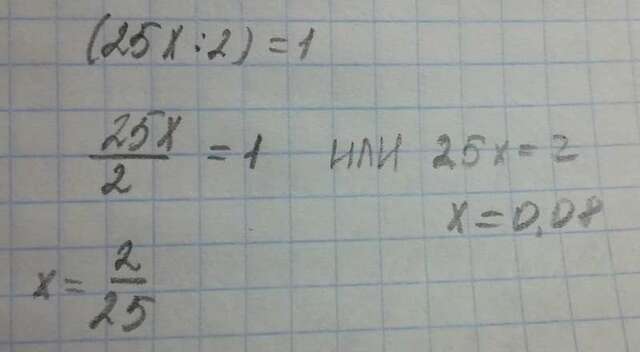 (25x:2)=1
25x/2 = 1 или 25x=2
x=0,08
x = 2/25